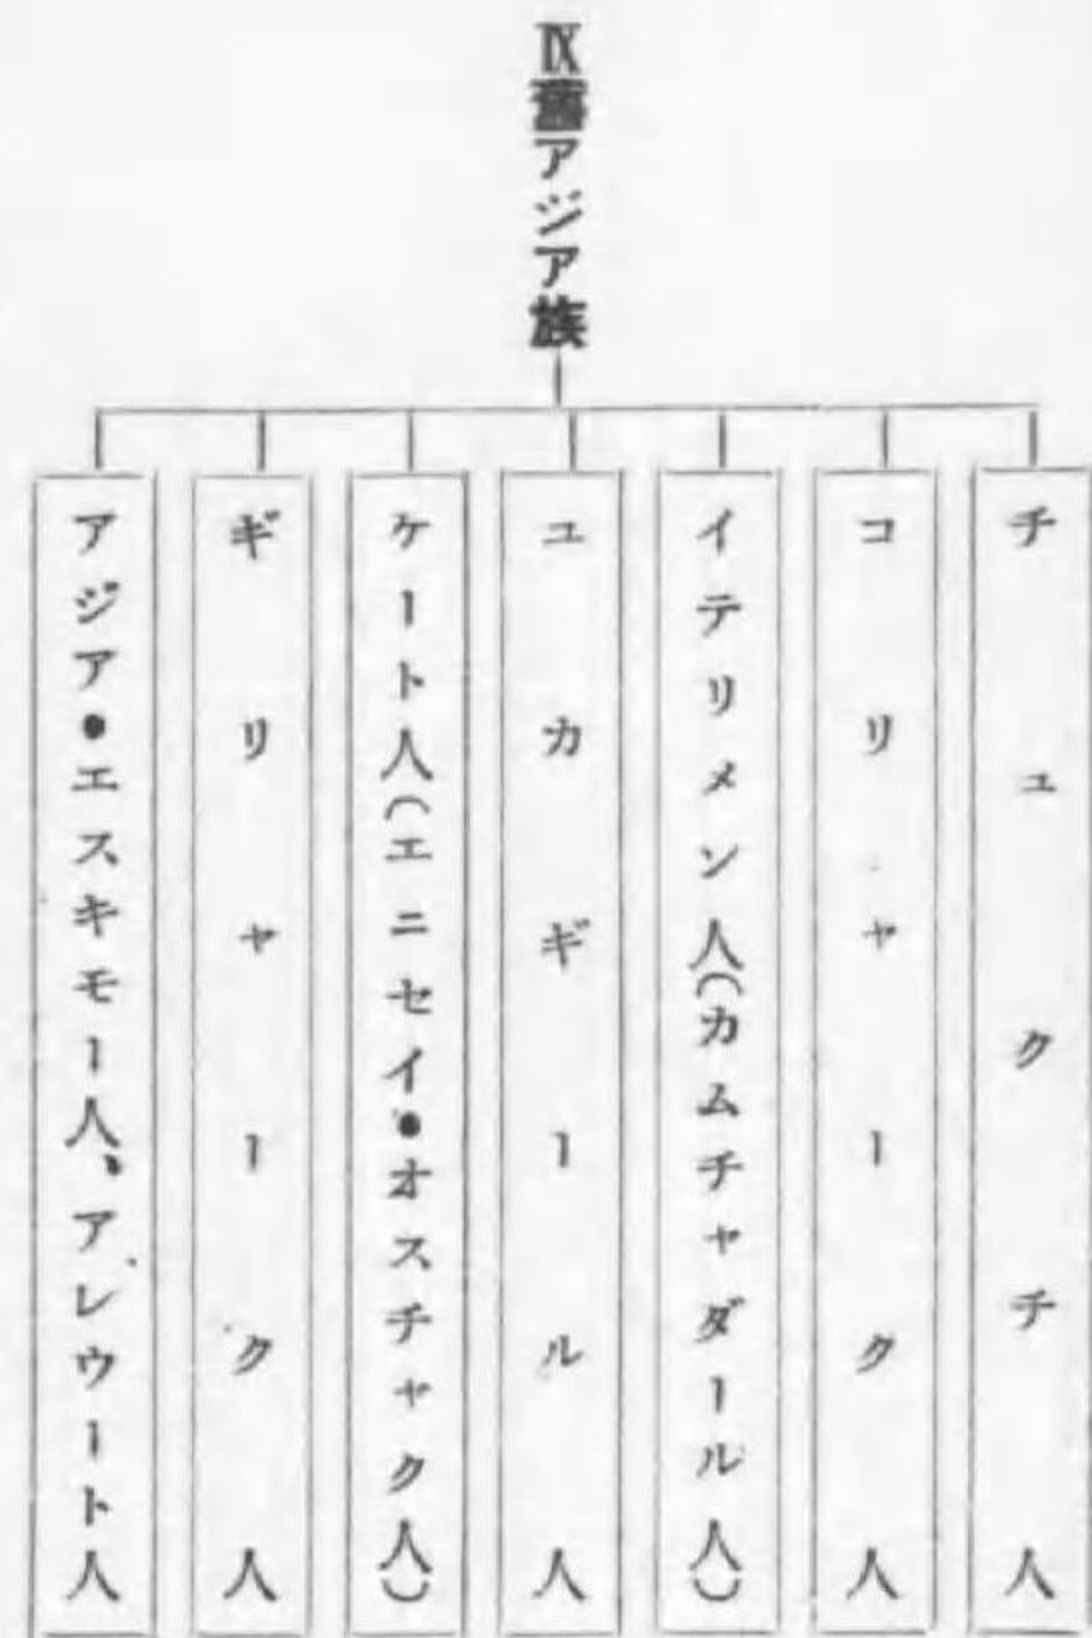 Ⅸ舊アジア族
チュクチ人
コリャーク人
イテリメン人(カムチャダール人)
ユカギール人
ケート人(エニセイ・オスチャク人)
ギリャーク人
アジア・エスキモー人、アレウート人